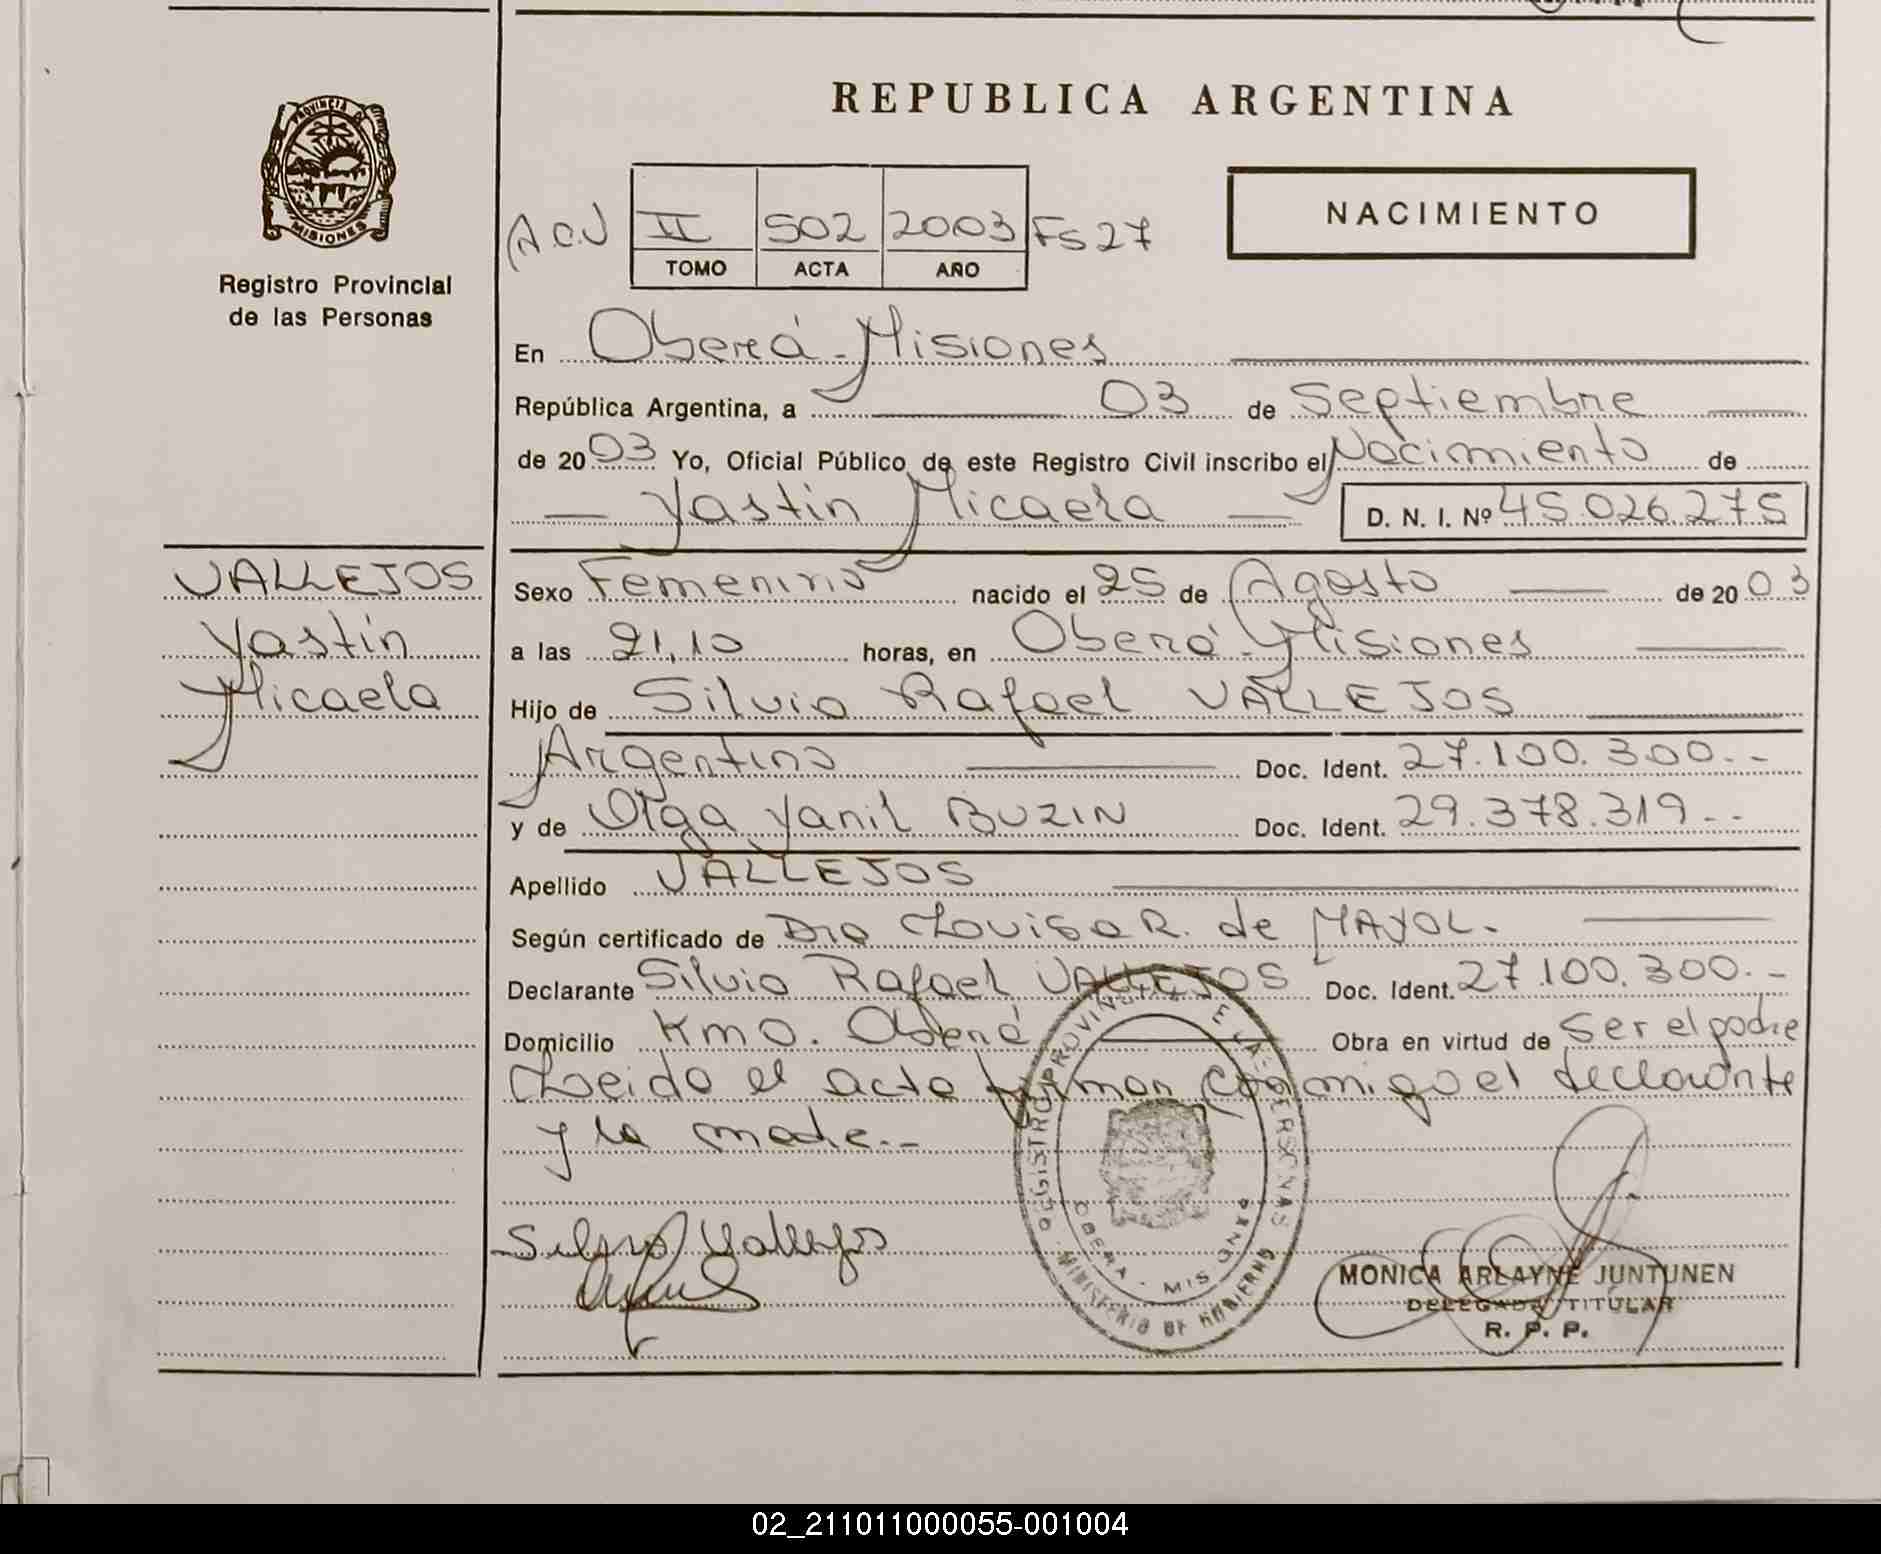 REPUBLICA ARGENTINA
PROVINCIA DE
MISIONES
Registro Provincial
de las Personas
NACIMIENTO
II 502 2003 Fs 27
TOMO ACTA AÑO
En Oberá - Misiones
República Argentina, a 03 de Septiembre
de 2003 Yo, Oficial Público de este Registro Civil inscribo el Nacimiento de
Yastin Micaela D. N. I. Nº 45.026.275
VALLEJOS
Yastin
Micaela
Sexo Femenino nacido el 25 de Agosto de 2003
a las 21,10 horas, en Oberá - Misiones
Hijo de Silvio Rafael VALLEJOS
Argentino Doc. Ident. 27.100.300.--
y de Olga Yanil BUZIN Doc. Ident. 29.378.319.--
Apellido VALLEJOS
Según certificado de Dra Louisa R. de MAYOL.
Declarante Silvio Rafael VALLEJOS Doc. Ident. 27.100.300.--
Domicilio Km 0. Oberá Obra en virtud de ser el padre
Leida el acta firman conmigo el declarante
y la madre.--
REGISTRO PROVINCIAL DE LAS PERSONAS
OBERA - MISIONES
MINISTERIO DE GOBIERNO
Silvio Vallejos
MONICA ARLAYNE JUNTUNEN
DELEGADA TITULAR
R. P. P.
02_211011000055-001004